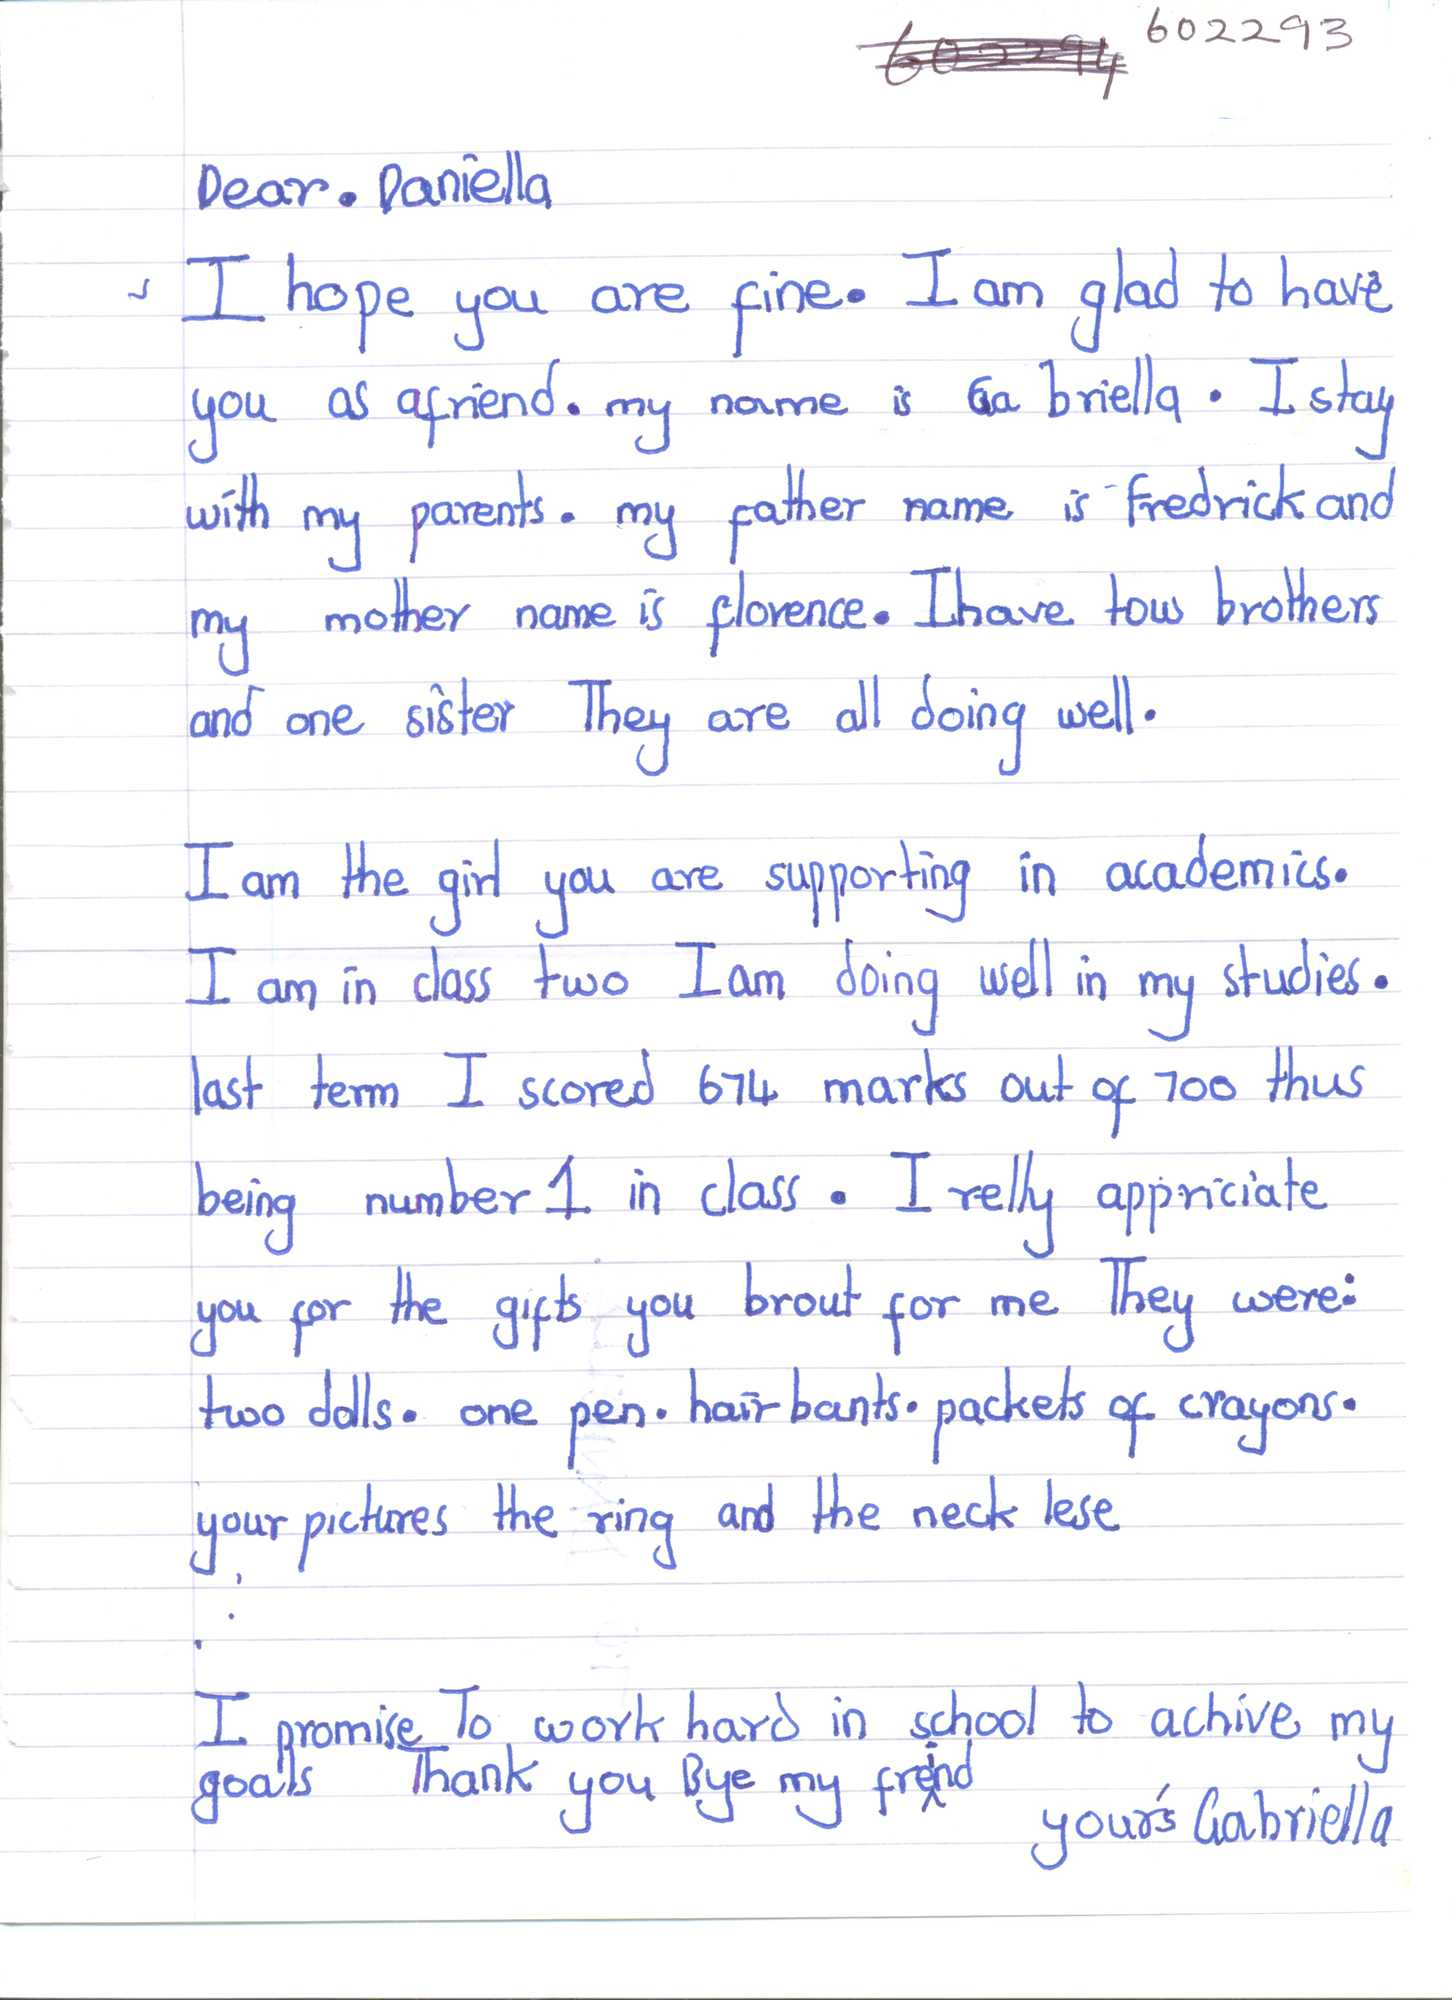 602294 602293
Dear. Daniella
I hope you are fine. I am glad to have
you as afriend. my name is Gabriella. I stay
with my parents. my father name is Fredrick and
my mother name is florence. I have tow brothers
and one sister They are all doing well.
I am the girl you are supporting in academics.
I am in class two I am doing well in my studies.
last term I scored 674 marks out of 700 thus
being number 1 in class. I relly appriciate
you for the gifts you brout for me They were:
two dolls. one pen. hair bants. packets of crayons.
your pictures the ring and the neck lese
I promise To work hard in school to achive my
goals Thank you Bye my freind
your's Gabriella